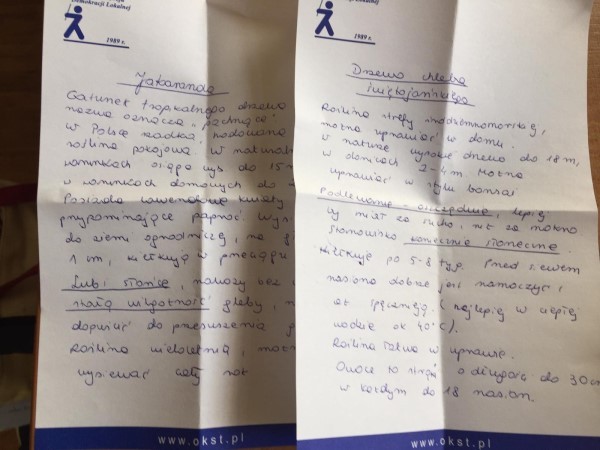 Demokracji Lokalnej
1989 r.
Jakaranda
Gatunek tropikalnego drzewa
nazwa oznacza "pachnące"
w Polsce rzadka, hodowana
roślina pokojowa. W natural
warunkach osiąga wys do 15 m
w warunkach domowych do
Posiada lawendowe kwiaty
przypominające paproć. Wysi
do ziemi ogrodniczej, na gł
1 cm, kiełkują w przeciągu
Lubi słońce, nawozy bez
stałą wilgotność gleby, n
dopuścić do przesuszenia
Roślina wieloletnia, można
wysiewać cały rok
www.okst.pl
Demokracji Lokalnej
1989 r.
Drzewo chleba
świętojańskiego
Roślina strefy śródziemnomorskiej,
można uprawiać w domu.
w naturze wysokie drzewo do 18 m,
w domach 2-4 m można
uprawiać w stylu bonsai
Podlewanie - oszczędnie, lepiej
by miał za sucho, niż za mokro
stanowisko koniecznie słoneczne.
Kiełkuje po 5-8 tyg. Przed siewem
nasiona dobrze jest namoczyć,
aż spęcznieją. (najlepiej w ciepłej
wodzie ok 40°C).
Roślina łatwa w uprawie.
Owoce to strąki o długości do 30 cm
w każdym do 18 nasion.
www.okst.pl